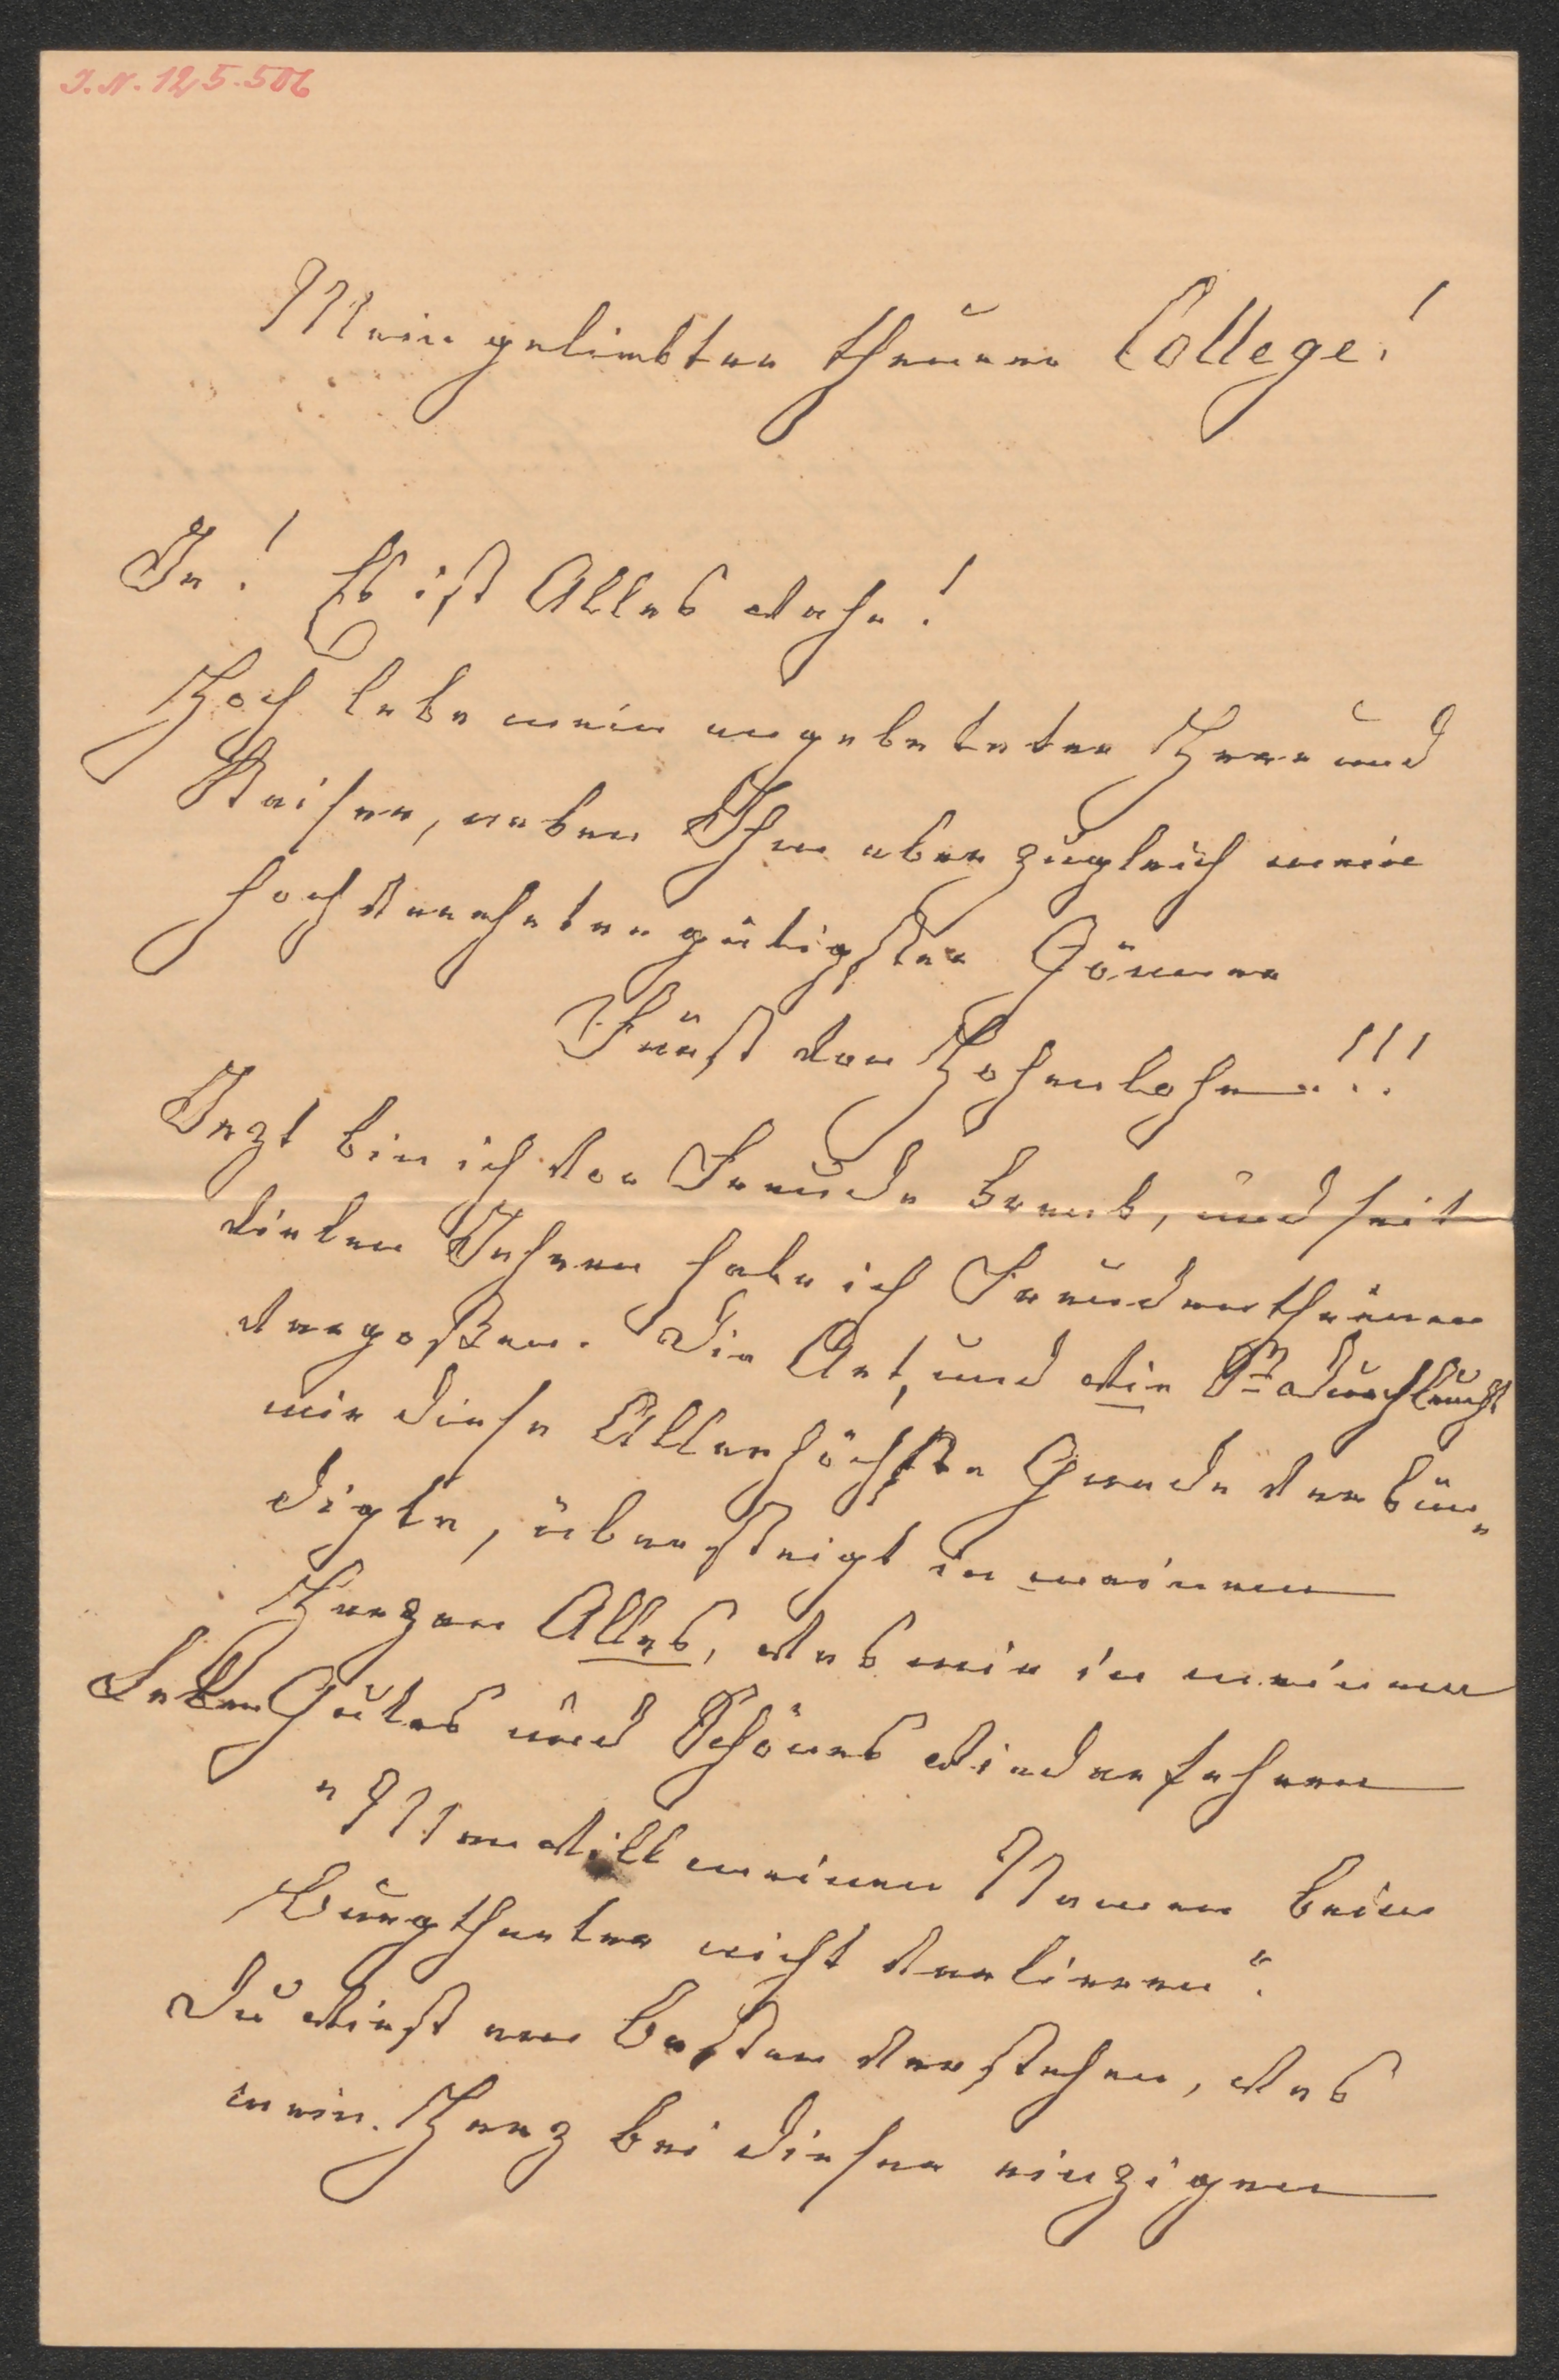 I.N. 125.506
Mein geliebter theurer College!
Ja! Es ist Alles wahr!
Hoch lebe mein angebeteter Herr und
Kaiser, neben Ihm aber zugleich mein
hochverehrter gütigster Gönner
Fürst von Hohenlohe!!!
Jezt bin ich vor Freude krank, und seit
vielen Jahren habe ich Freudenthränen
vergoßen. Die Art, und wie Sr Durchlaucht
mir diese Allerhöchste Gnade verkün„
digte, übersteigt in meinem
Herzen Alles, was mir in meinem
Leben Gutes und Schönes wiederfahren
"Man will meinen Namen beim
Burgtheater nicht verlieren".
Du wirst am Besten verstehen, was
mein Herz bei dieser einzigen